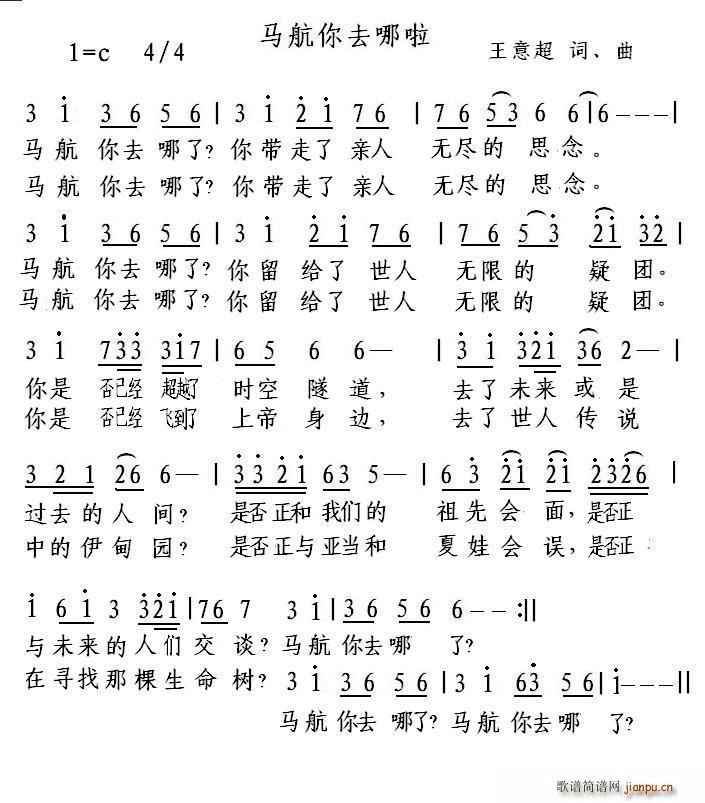 马航你去哪啦
1=c 4/4 王意超 词、曲
3 i 3 6 5 6 | 3 i 2 i 7 6 | 7 6 5 3 6 6 | 6 - - - |
马航 你去 哪了? 你带走了 亲人 无尽的 思念。
马航 你去 哪了? 你带走了 亲人 无尽的 思念。
3 i 3 6 5 6 | 3 i 2 i 7 6 | 7 6 5 3 2 i 3 2 |
马航 你去 哪了? 你留给了 世人 无限的 疑团。
马航 你去 哪了? 你留给了 世人 无限的 疑团。
3 i 7 3 3 3 i 7 | 6 5 6 6 — | 3 i 3 2 i 3 6 2 — |
你是 否已经 超越了 时空 隧道, 去了未来或是
你是 否已经 飞到了 上帝 身边, 去了世人传说
3 2 1 2 6 6 — | 3 3 2 i 6 3 5 — | 6 3 2 i 2 i 2 3 2 6 |
过去的人间? 是否正和我们的 祖先会面,是否正
中的伊甸园? 是否正与亚当和 夏娃会误,是否正
i 6 i 3 3 2 i | 7 6 7 3 i | 3 6 5 6 6 - - :||
与未来的人们交谈? 马航你去哪 了?
在寻找那棵生命树? 3 i 3 6 5 6 | 3 i 6 3 5 6 | i — — ||
马航你去 哪了? 马航你去哪 了?
歌谱简谱网 jianpu.cn